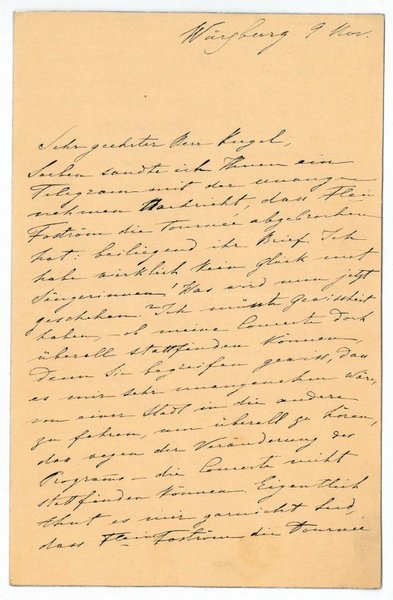 Würzburg 9 Nov.
Sehr geehrter Herr Kugel,
Soeben sandte ich Ihnen ein
Telegram mit der unange-
nehmen Nachricht, dass Flein
Foström die Tournée abgebrochen
hat: beiliegend ihr Brief. Ich
habe wirklich kein Glück mit
Sängerinnen! Was wird nun jetzt
geschehen? Ich müsste Gewissheit
haben, ob meine Concerte doch
überall stattfinden können,
denn Sie begreifen gewiss, dass
es mir sehr unangenehm wäre,
von einer Stadt in die andere
zu fahren, um überall zu hören,
dass wegen der Veränderung des
Programs – die Concerte nicht
stattfinden können. Eigentlich
thut es mir garnicht leid,
dass Flein Foström die Tournée